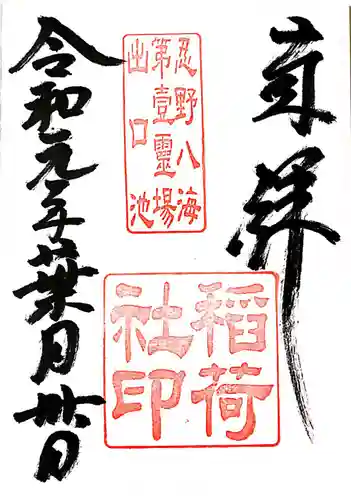 奉拝
忍野八海
第壹靈場
出口池
稲荷
社印
令和元年葉月廿日